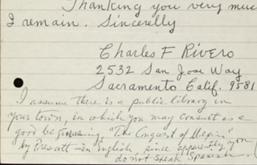 Thanking you very much
I remain. Sincerelly
Charles F Rivero
2532 San Jose Way
Sacramento Calif. 95817
I assume there is a public library in
your town, in which you may consult as a
good beginning "The Conquest of Mexico"
by Prescott - in English, since apparently you
do not speak Spanish